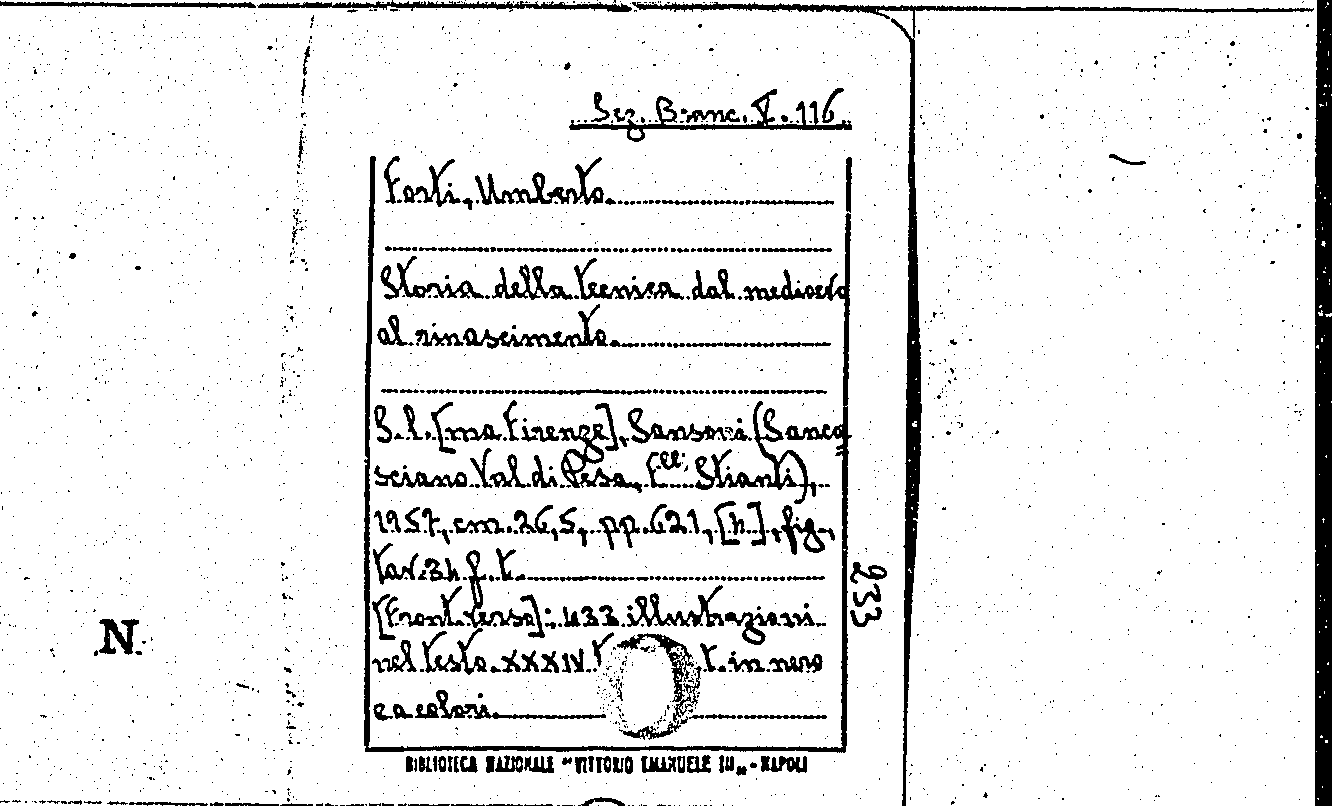 Sez. Branc. V. 116
Forti, Umberto.
Storia della tecnica dal medioevo
al rinascimento.
S.l. [ma Firenze], Sansoni (Sanca
sciano Val di Pesa, F.lli Stianti),
1957, cm. 26,5, pp. 621, [h], fig.,
tav. 34 f. t.
[Front. verso]: 433 illustrazioni
nel testo. XXXIV t. in nero
e a colori.
233
N
BIBLIOTECA NAZIONALE "VITTORIO EMANUELE III„ - NAPOLI